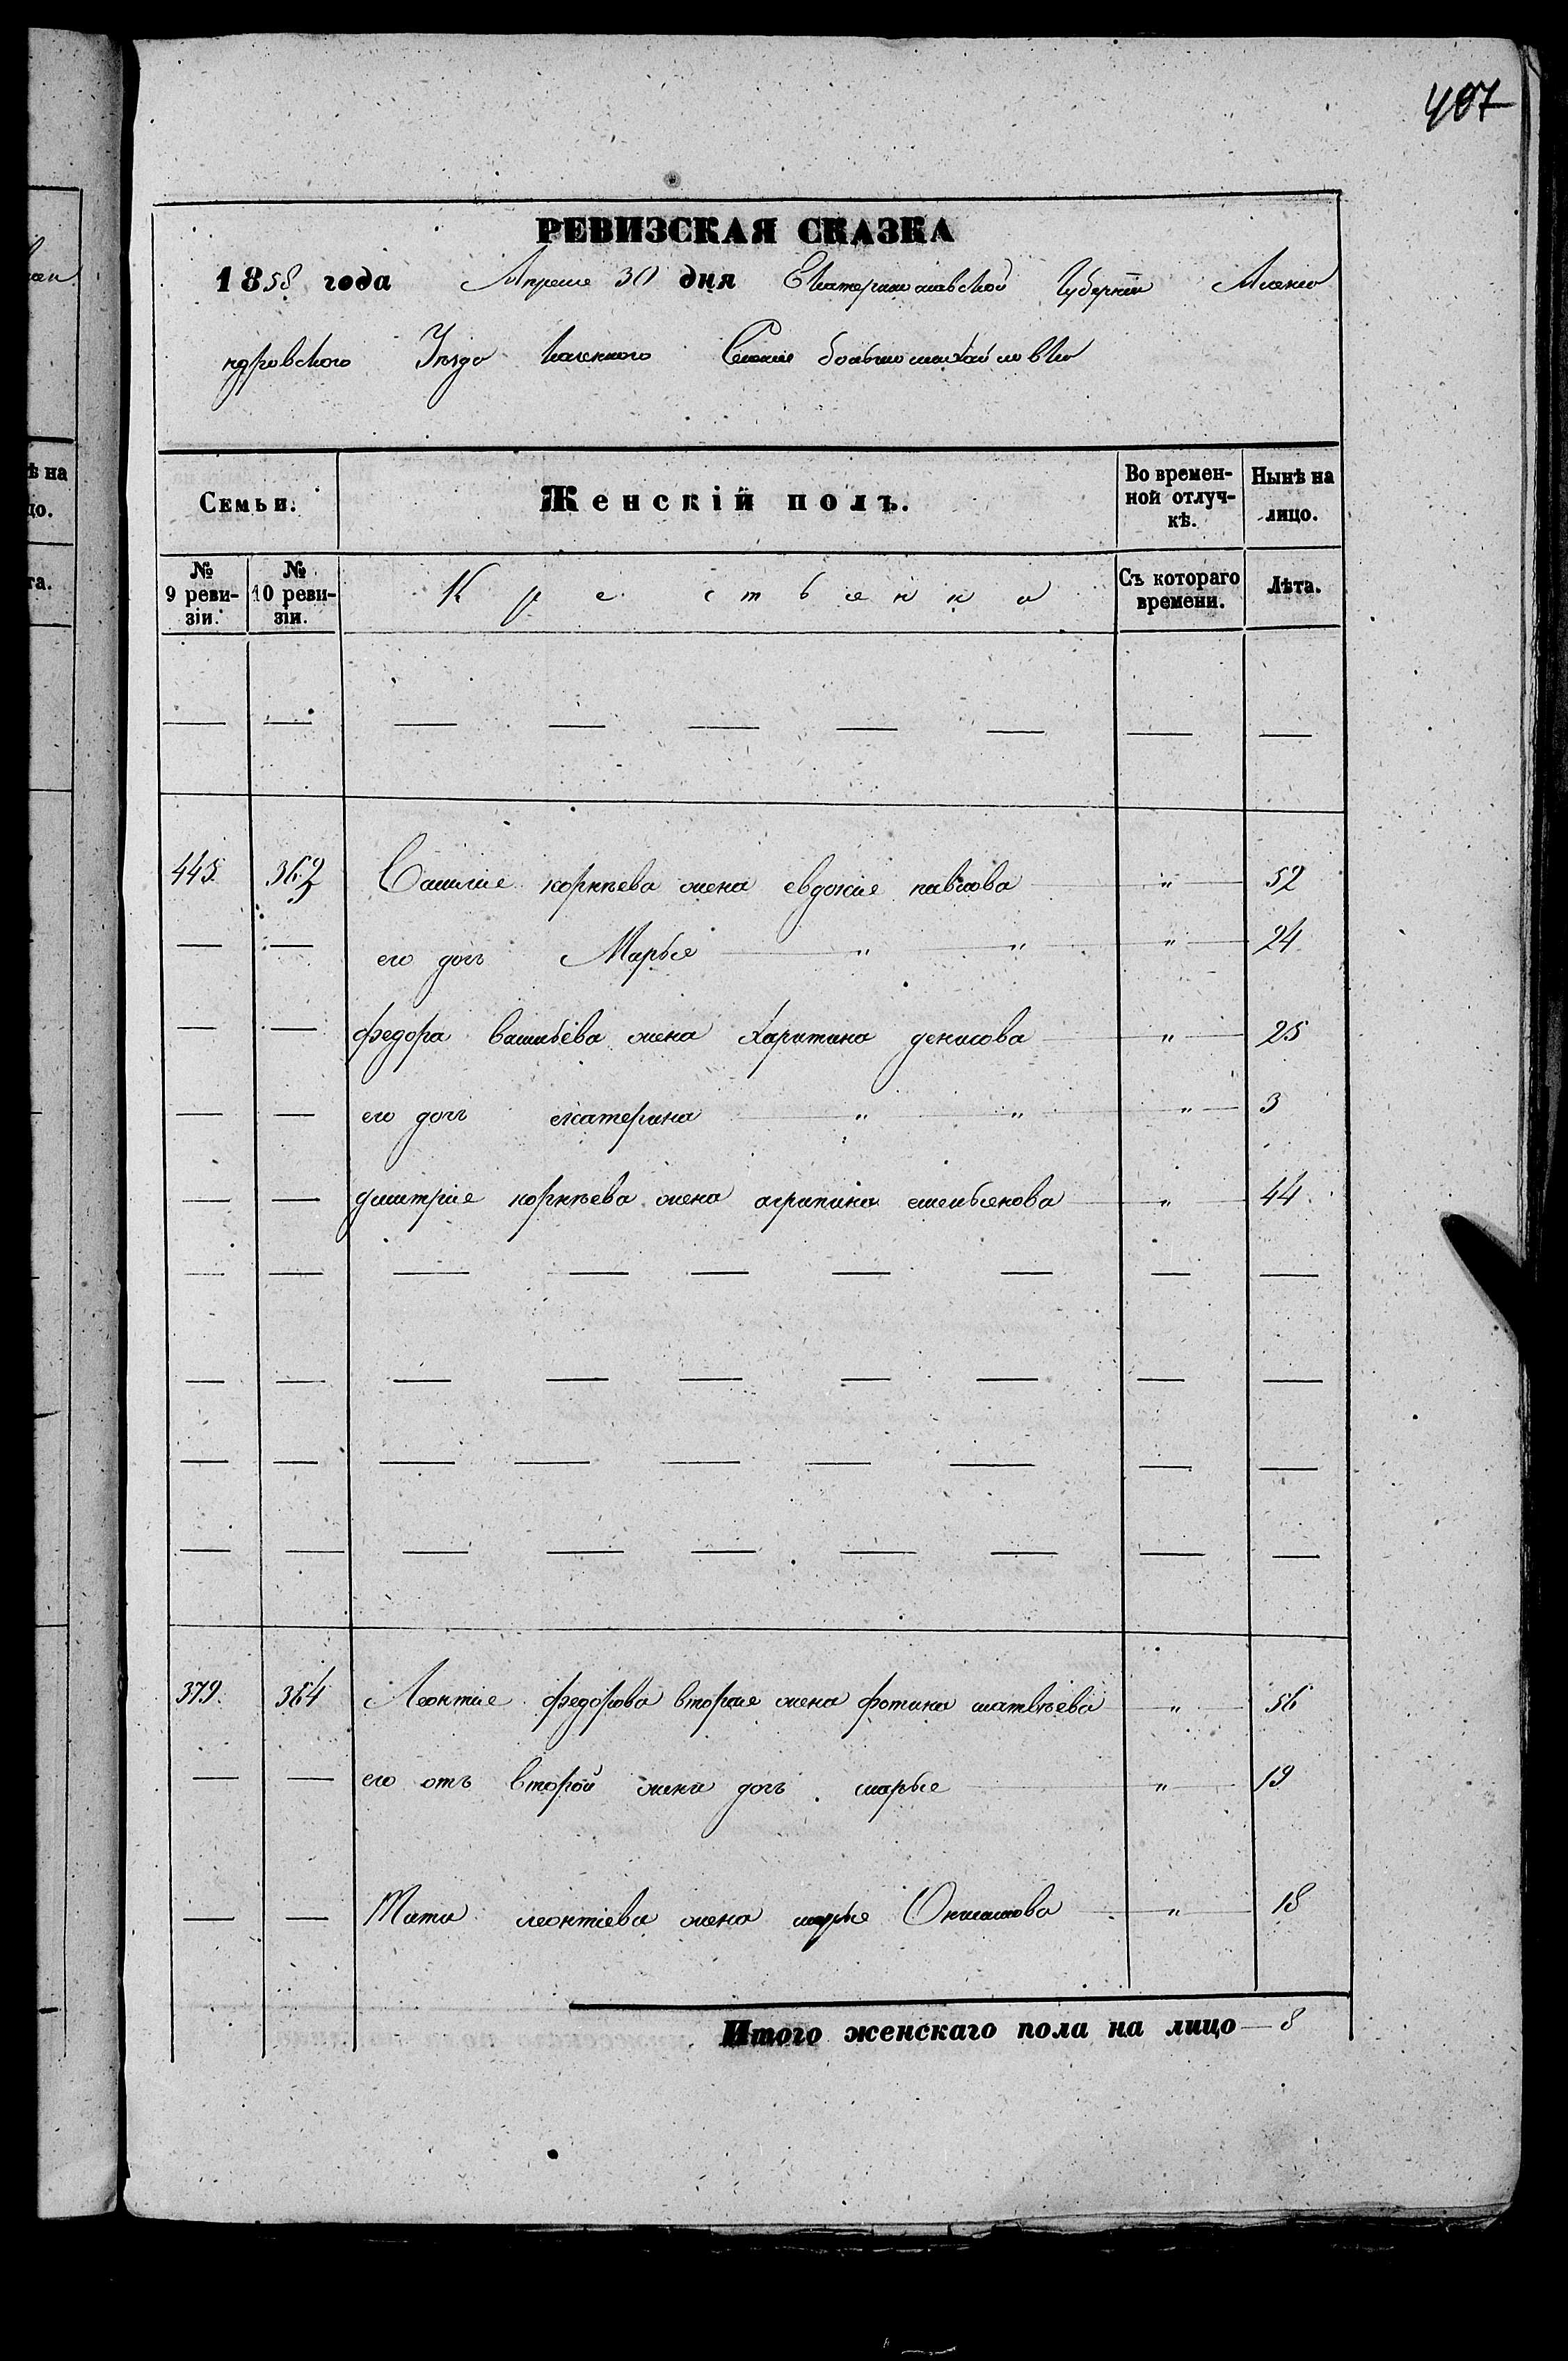 407
РЕВИЗСКАЯ СКАЗКА
1858 года Апреля 30 дня Екатеринославской Губернии Алекса
ндровского Уезда казенного Селения большемихайловки
Семьи. Женскій полъ. Во времен-ной отлуч-кѣ. Нынѣ на лицо.
№ 9 реви-зіи. № 10 реви-зіи. Крестьянки Съ котораго времени. Лѣта.
443 Василия корнѣева жена евдокия павлова " 52
его дочь Марья " " " 24
федора васильева жена харитина денисова " 25
его дочь екатерина " " " 3
дмитрия корнѣева жена агрипина емельянова " 44
379 364 Леонтия федорова вторая жена фотина матвѣева " 56
его отъ второй жены дочь марья " 19
леонтіева жена марья " 18
Итого женскаго пола на лицо 8